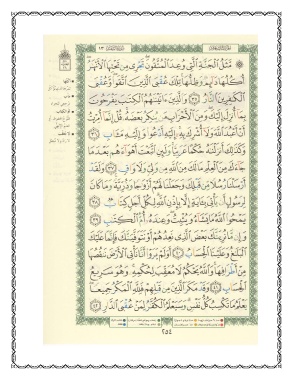 ۞ مَّثَلُ ٱلْجَنَّةِ ٱلَّتِى وُعِدَ ٱلْمُتَّقُونَ تَجْرِى مِن تَحْتِهَا ٱلْأَنْهَٰرُ
أُكُلُهَا دَآئِمٌ وَظِلُّهَا تِلْكَ عُقْبَى ٱلَّذِينَ ٱتَّقَوا۟ وَّعُقْبَى
ٱلْكَٰفِرِينَ ٱلنَّارُ ٣٥ وَٱلَّذِينَ ءَاتَيْنَٰهُمُ ٱلْكِتَٰبَ يَفْرَحُونَ
بِمَآ أُنزِلَ إِلَيْكَ وَمِنَ ٱلْأَحْزَابِ مَن يُنكِرُ بَعْضَهُۥ قُلْ إِنَّمَآ أُمِرْتُ
أَنْ أَعْبُدَ ٱللَّهَ وَلَآ أُشْرِكَ بِهِۦٓ إِلَيْهِ أَدْعُوا۟ وَإِلَيْهِ مَـَٔابِ ٣٦
وَكَذَٰلِكَ أَنزَلْنَٰهُ حُكْمًا عَرَبِيًّا وَلَئِنِ ٱتَّبَعْتَ أَهْوَآءَهُم بَعْدَ مَا
جَآءَكَ مِنَ ٱلْعِلْمِ مَا لَكَ مِنَ ٱللَّهِ مِن وَلِىٍّ وَلَا وَاقٍ ٣٧ وَلَقَدْ
أَرْسَلْنَا رُسُلًا مِّن قَبْلِكَ وَجَعَلْنَا لَهُمْ أَزْوَٰجًا وَذُرِّيَّةً وَمَا كَانَ
لِرَسُولٍ أَن يَأْتِىَ بِـَٔايَةٍ إِلَّا بِإِذْنِ ٱللَّهِ لِكُلِّ أَجَلٍ كِتَابٌ ٣٨
يَمْحُوا۟ ٱللَّهُ مَا يَشَآءُ وَيُثْبِتُ وَعِندَهُۥٓ أُمُّ ٱلْكِتَٰبِ ٣٩
وَإِن مَّا نُرِيَنَّكَ بَعْضَ ٱلَّذِى نَعِدُهُمْ أَوْ نَتَوَفَّيَنَّكَ فَإِنَّمَا عَلَيْكَ
ٱلْبَلَٰغُ وَعَلَيْنَا ٱلْحِسَابُ ٤٠ أَوَلَمْ يَرَوْا۟ أَنَّا نَأْتِى ٱلْأَرْضَ نَنقُصُهَا
مِنْ أَطْرَافِهَا وَٱللَّهُ يَحْكُمُ لَا مُعَقِّبَ لِحُكْمِهِۦ وَهُوَ سَرِيعُ
ٱلْحِسَابِ ٤١ وَقَدْ مَكَرَ ٱلَّذِينَ مِن قَبْلِهِمْ فَلِلَّهِ ٱلْمَكْرُ جَمِيعًا
يَعْلَمُ مَا تَكْسِبُ كُلُّ نَفْسٍ وَسَيَعْلَمُ ٱلْكُفَّٰرُ لِمَنْ عُقْبَى ٱلدَّارِ ٤٢
٢٥٤